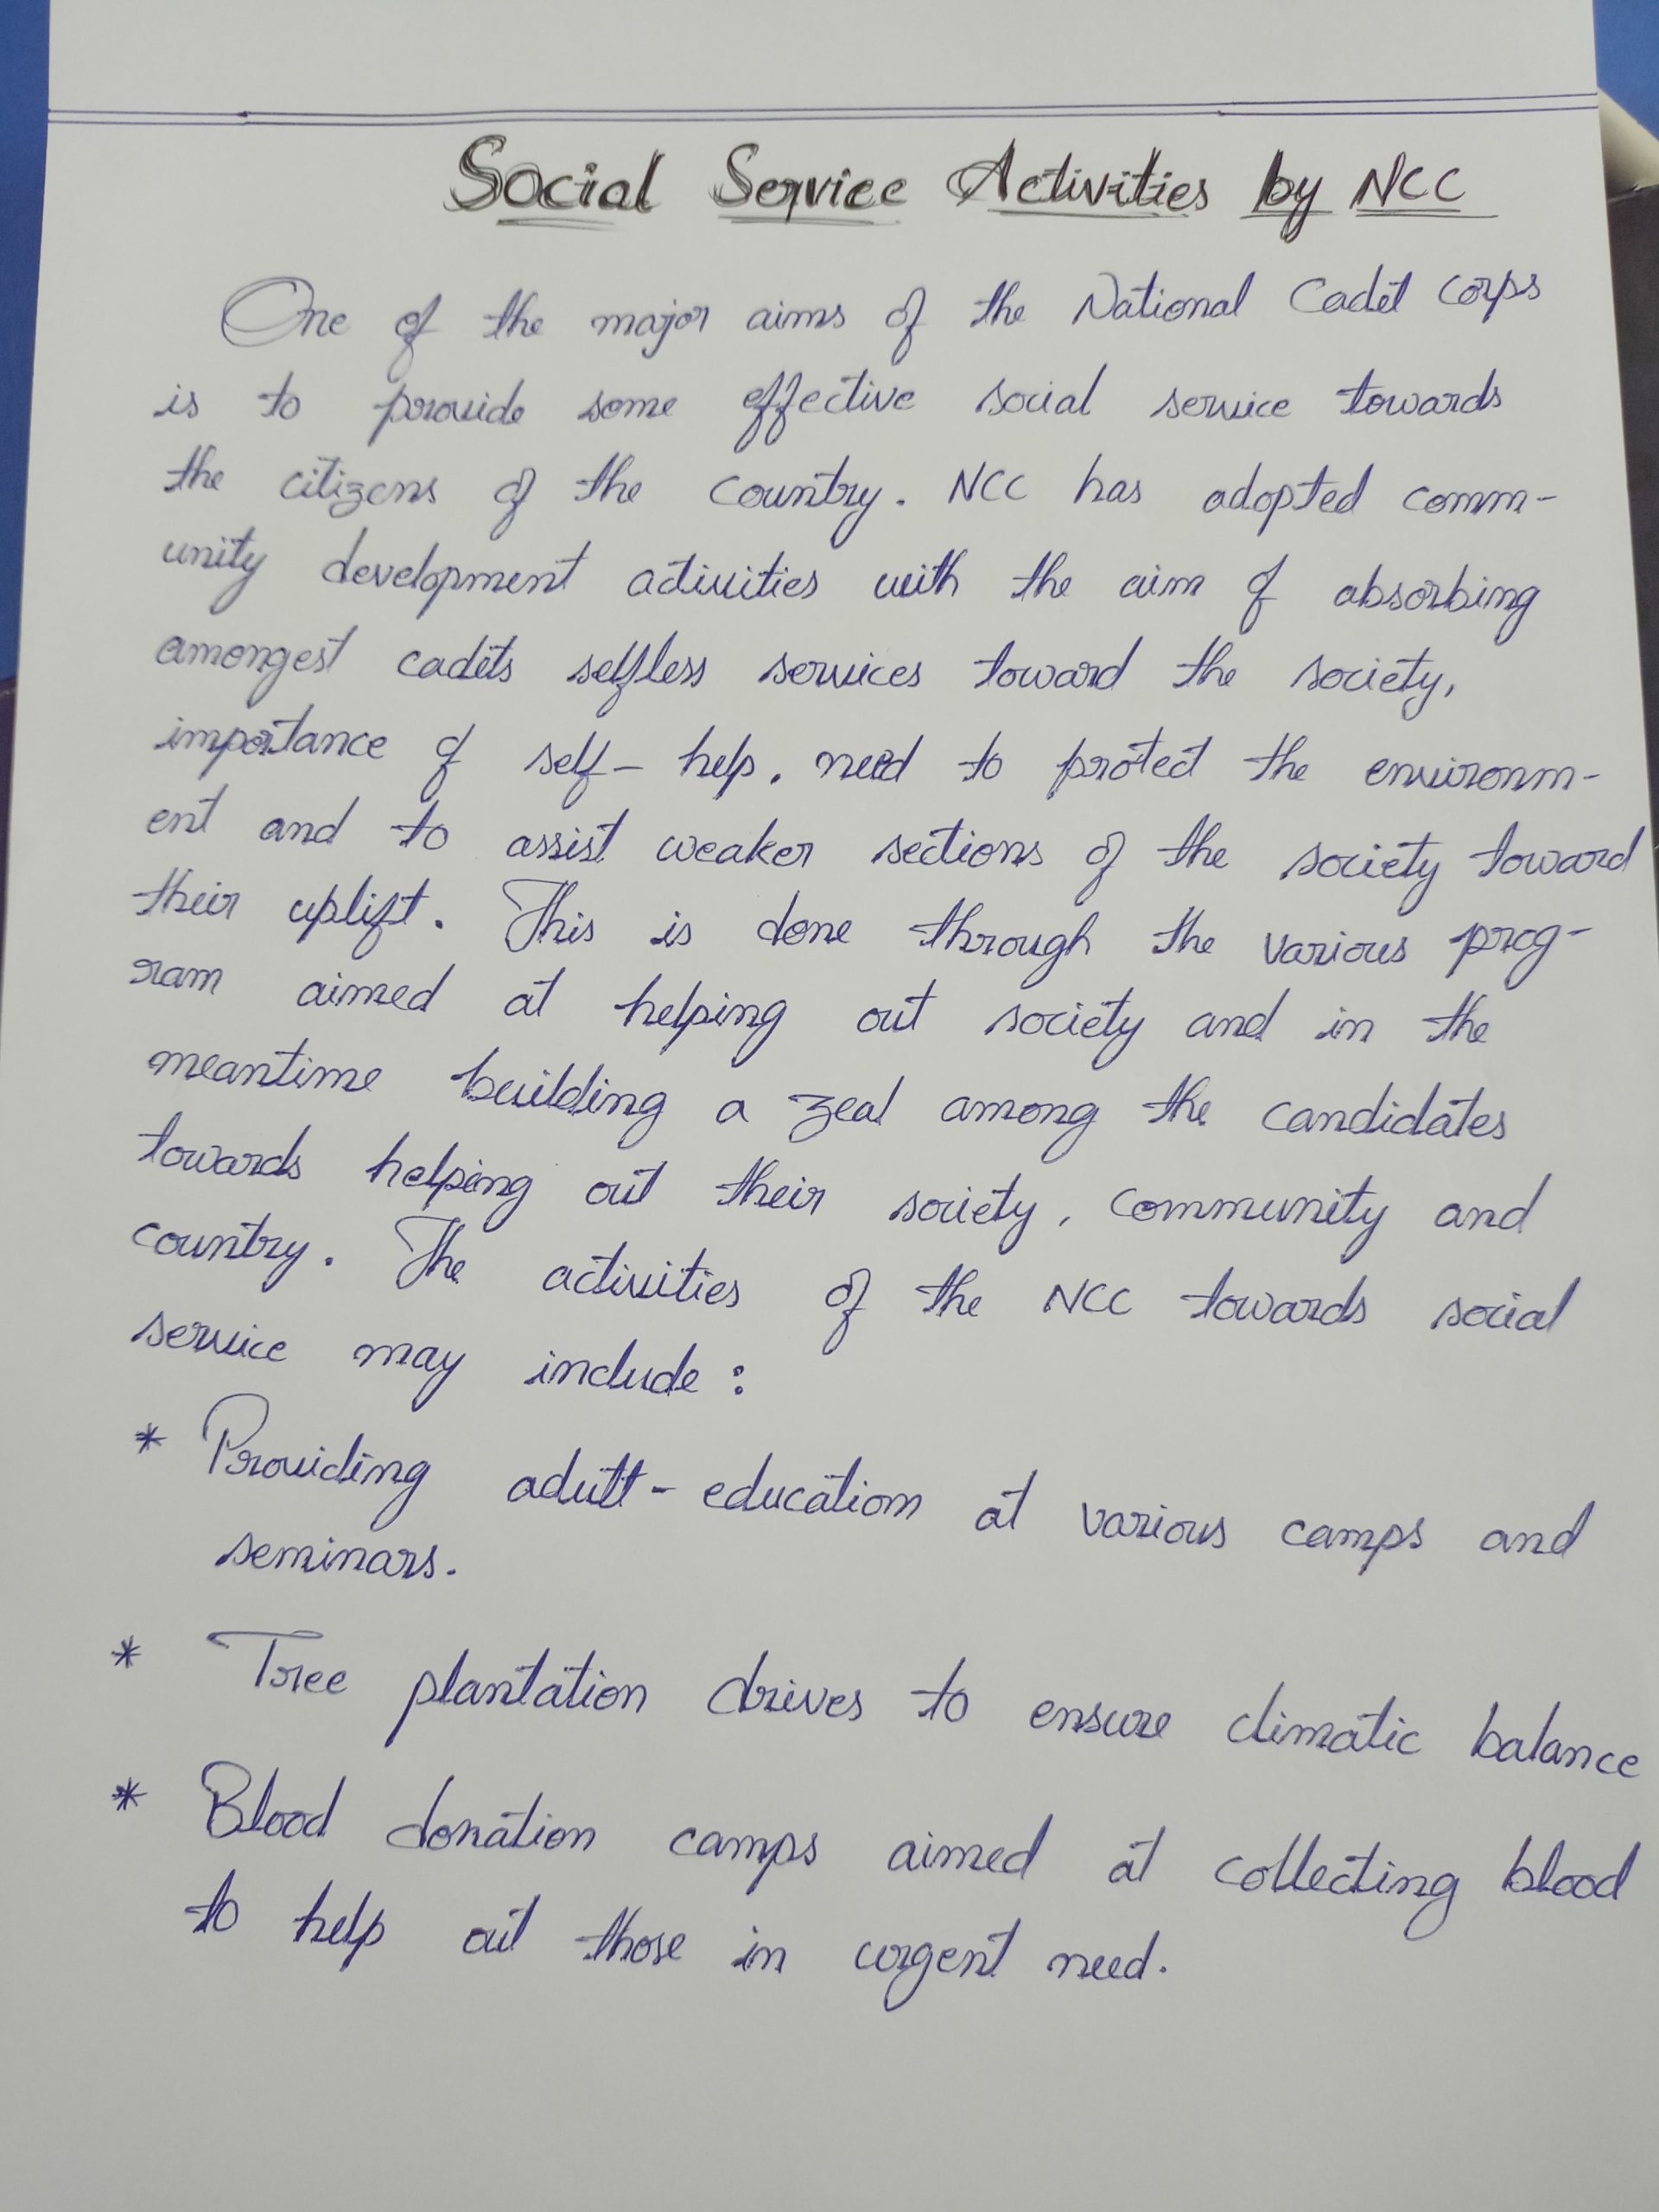 Social Service Activities by NCC
One of the major aims of the National Cadet Corps
is to provide some effective social service towards
the citizens of the country. NCC has adopted comm-
unity development activities with the aim of absorbing
amongest cadets selfless services toward the society,
importance of self-help. need to protect the environm-
ent and to assist weaker sections of the society toward
their uplift. This is done through the various prog-
ram aimed at helping out society and in the
meantime building a zeal among the candidates
towards helping out their society, community and
country. The activities of the NCC towards social
service may include:
* Providing adult-education at various camps and
seminars.
* Tree plantation drives to ensure climatic balance
* Blood donation camps aimed at collecting blood
to help out those in urgent need.